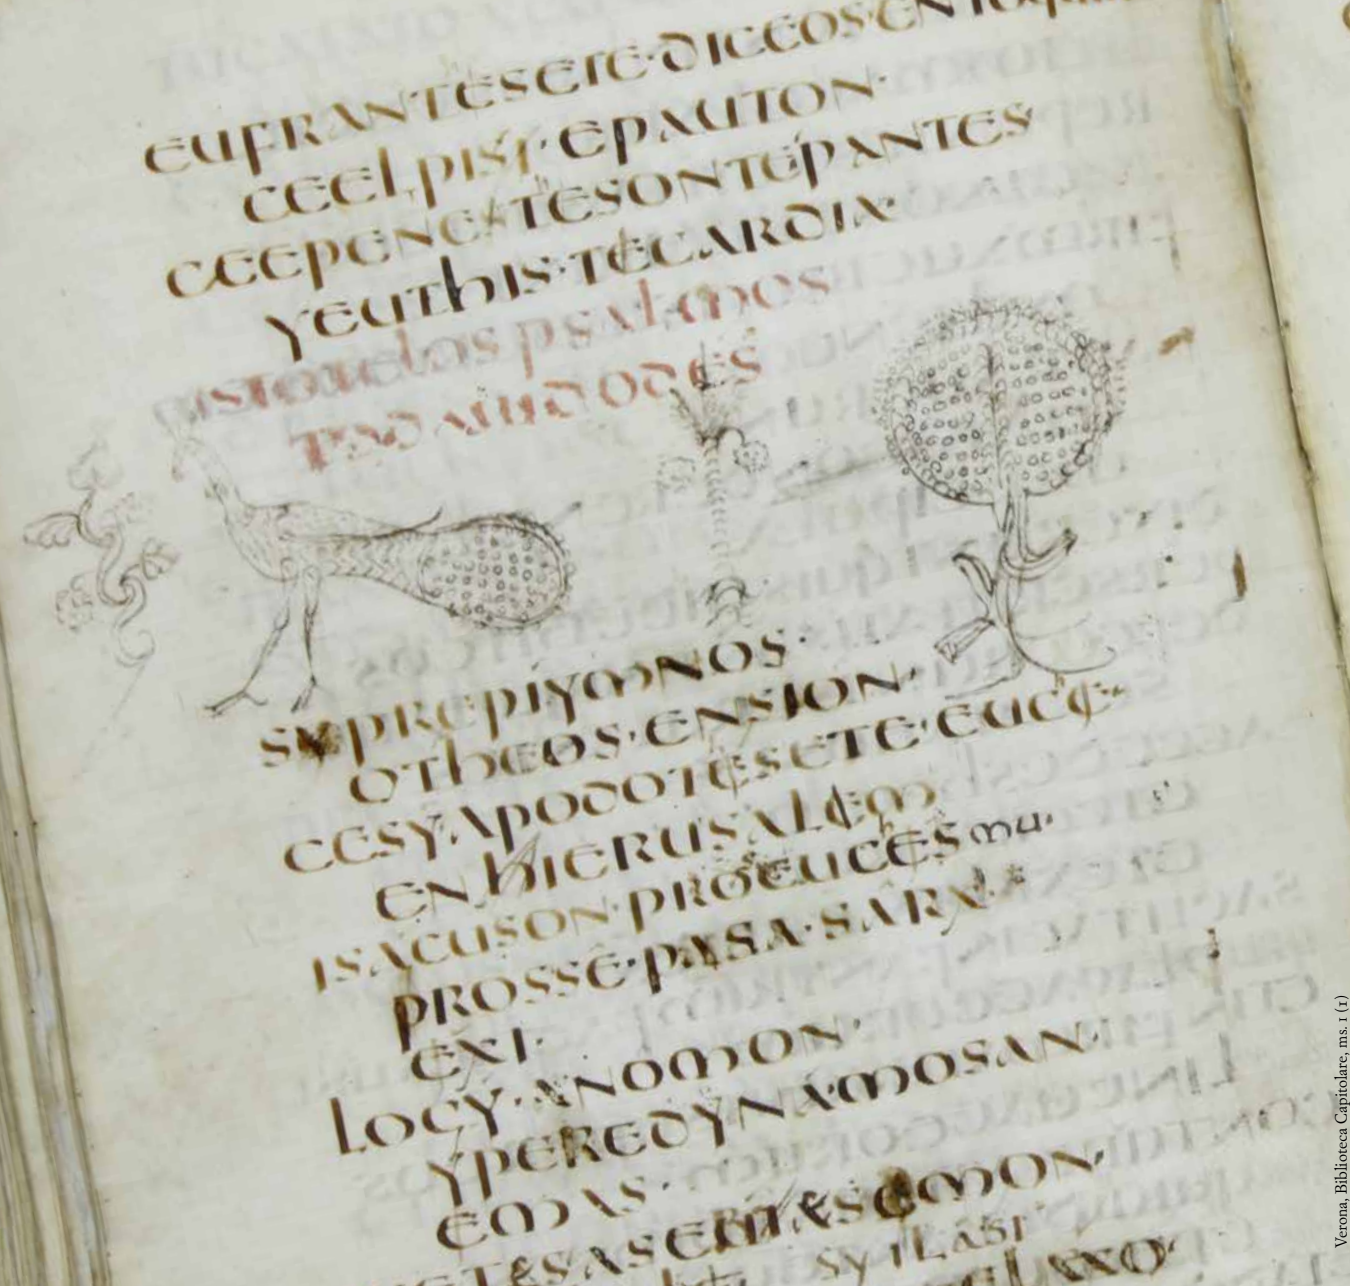 EUFRANTESETE·DICEOS·EN
CEELPISI·EPAUTON·
CEEPENESTESONTEPANTES
YEUTHIS·TECARDIA·
PSALMOS
TODAUIDODES
SYPREPIYMNOS·
OTHEOS·ENSION·
CESY·APODOTESETE·EUCE·
ENHIERUSALEM
ISACUSON·PROEUCESmu·
PROSSE·PASA·SARX·
EXI·
LOCY·ANOMON·
YPEREDYNAMOSAN·
EMAS·
Verona, Biblioteca Capitolare, ms. 1 (1)